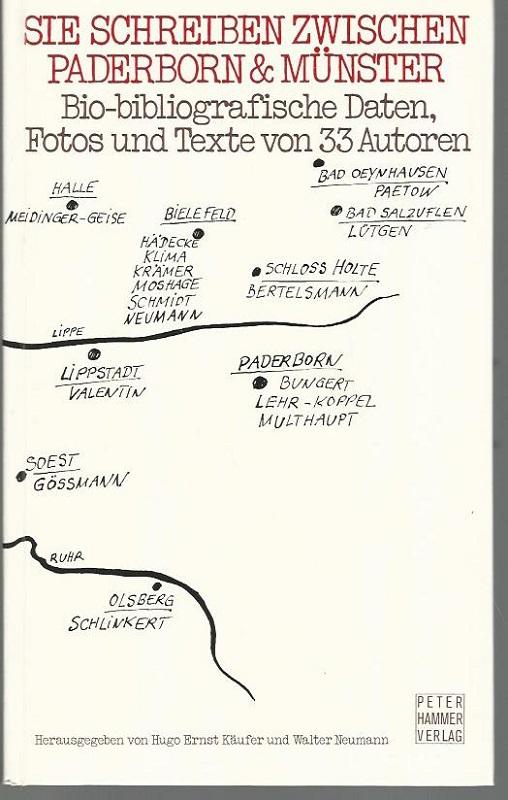 SIE SCHREIBEN ZWISCHEN
PADERBORN & MÜNSTER
Bio-bibliografische Daten,
Fotos und Texte von 33 Autoren
BAD OEYNHAUSEN
PAETOW
HALLE
MEIDINGER-GEISE
BIELEFELD
HÄDECKE
KLIMA
KRÄMER
MOSHAGE
SCHMIDT
NEUMANN
BAD SALZUFLEN
LÜTGEN
SCHLOSS HOLTE
BERTELSMANN
LIPPE
LIPPSTADT
VALENTIN
PADERBORN
BUNGERT
LEHR-KOPPEL
MULTHAUPT
SOEST
GÖSSMANN
RUHR
OLSBERG
SCHLINKERT
PETER
HAMMER
VERLAG
Herausgegeben von Hugo Ernst Käufer und Walter Neumann